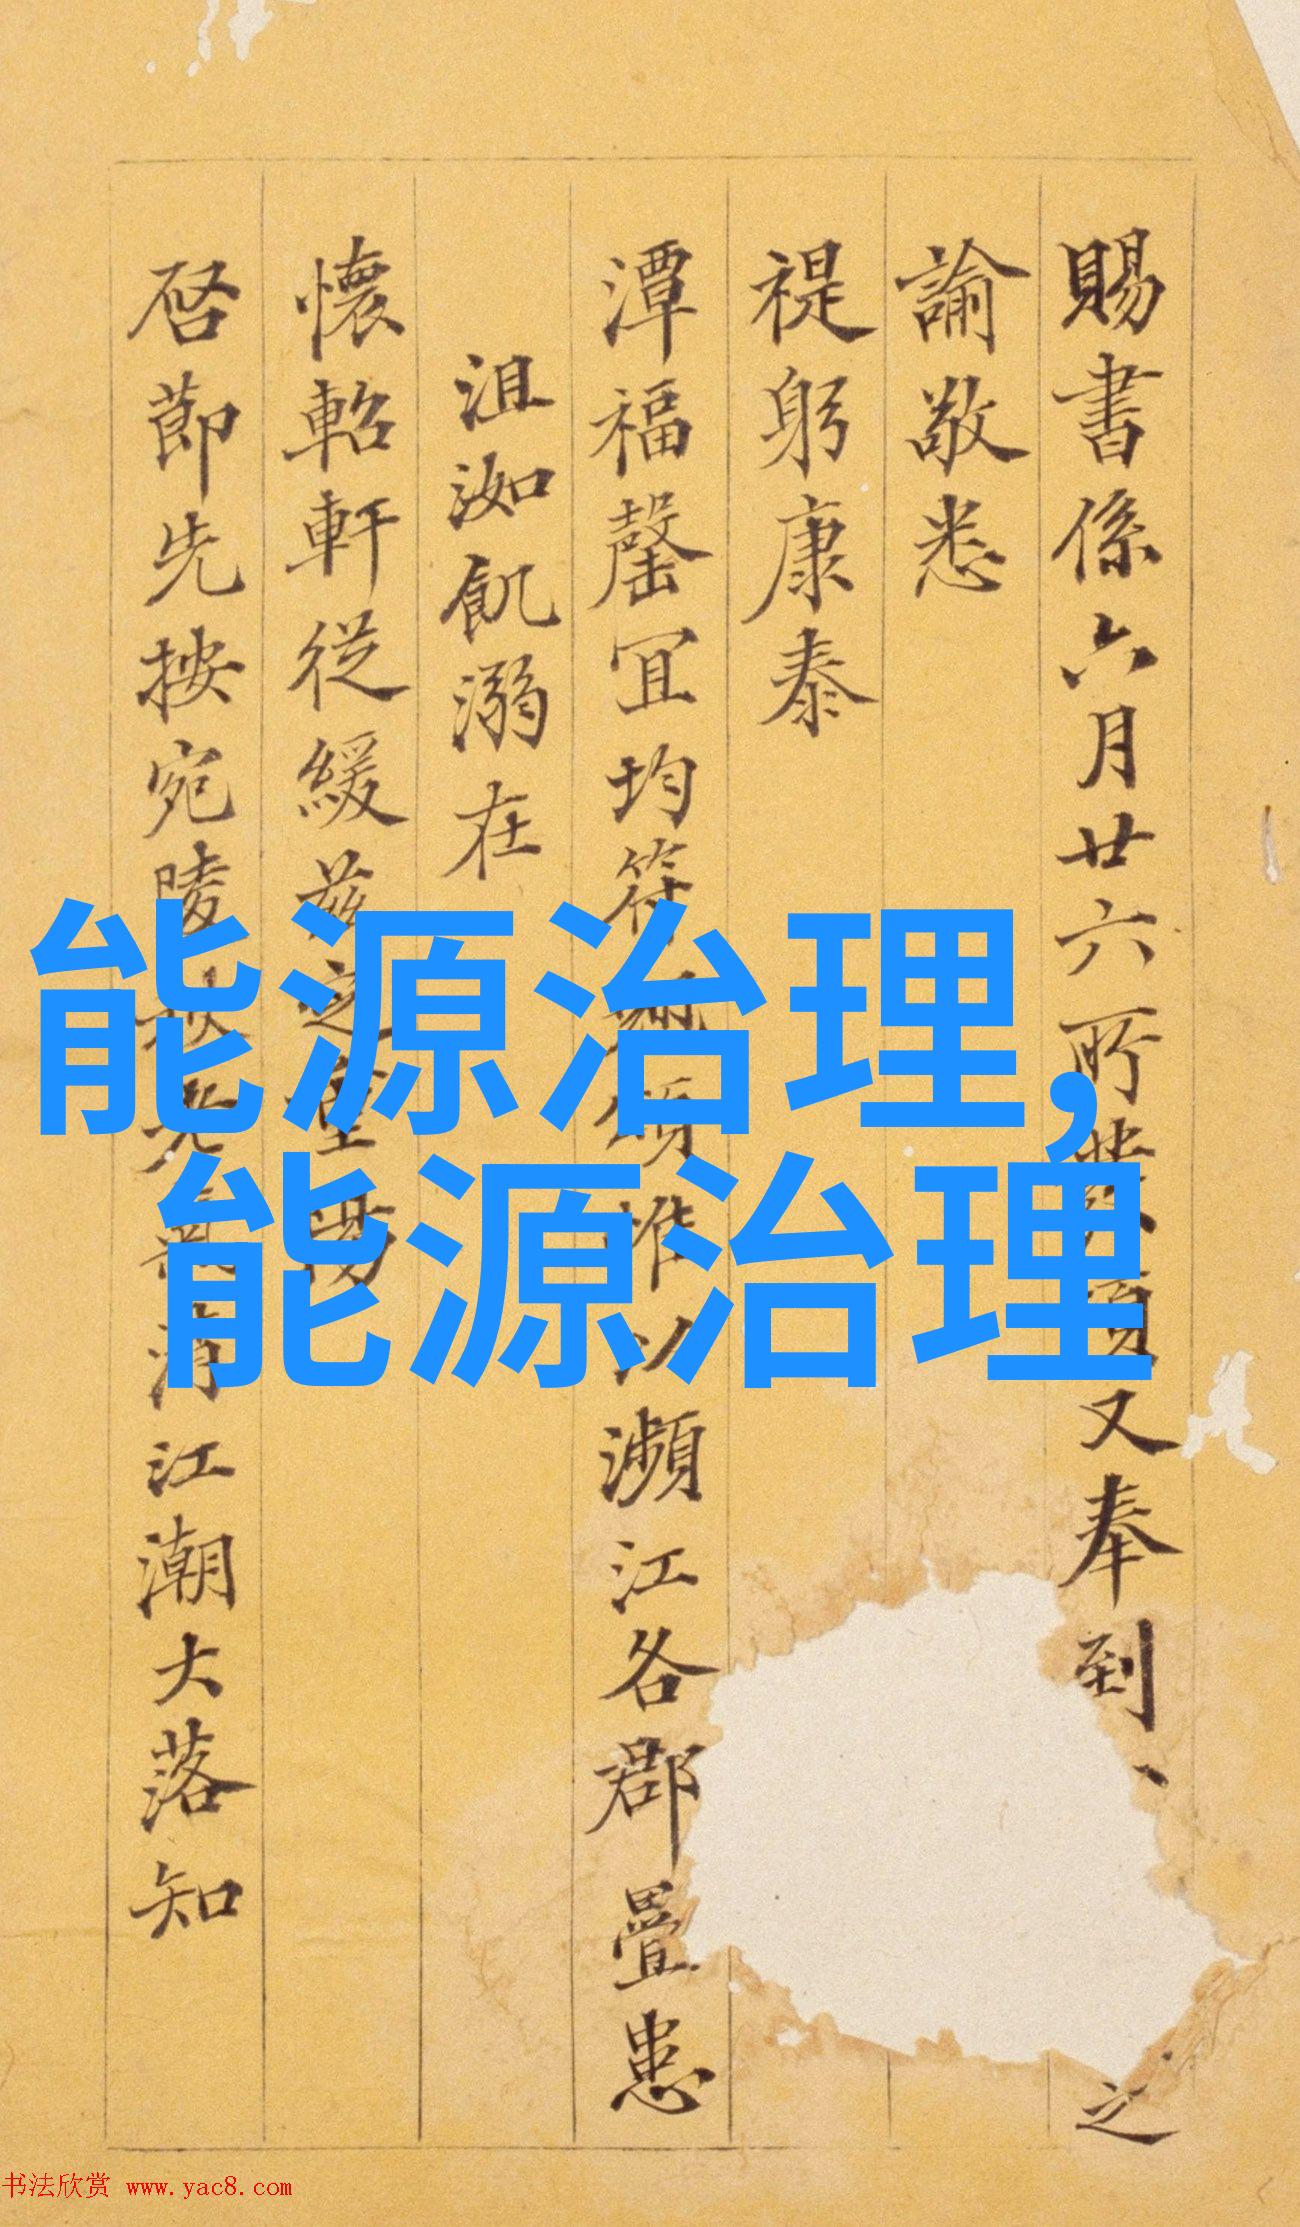 賜書係六月廿六所發
又奉到
之
諭敬悉
禔躬康泰
潭福罄宜均符
頌惟以瀕江各郡疊患
沮洳飢溺在
懷軺軒從緩茲之
啓節先按宛陵
江潮大落知
能源治理,
能源治理
书法欣赏 www.yac8.com